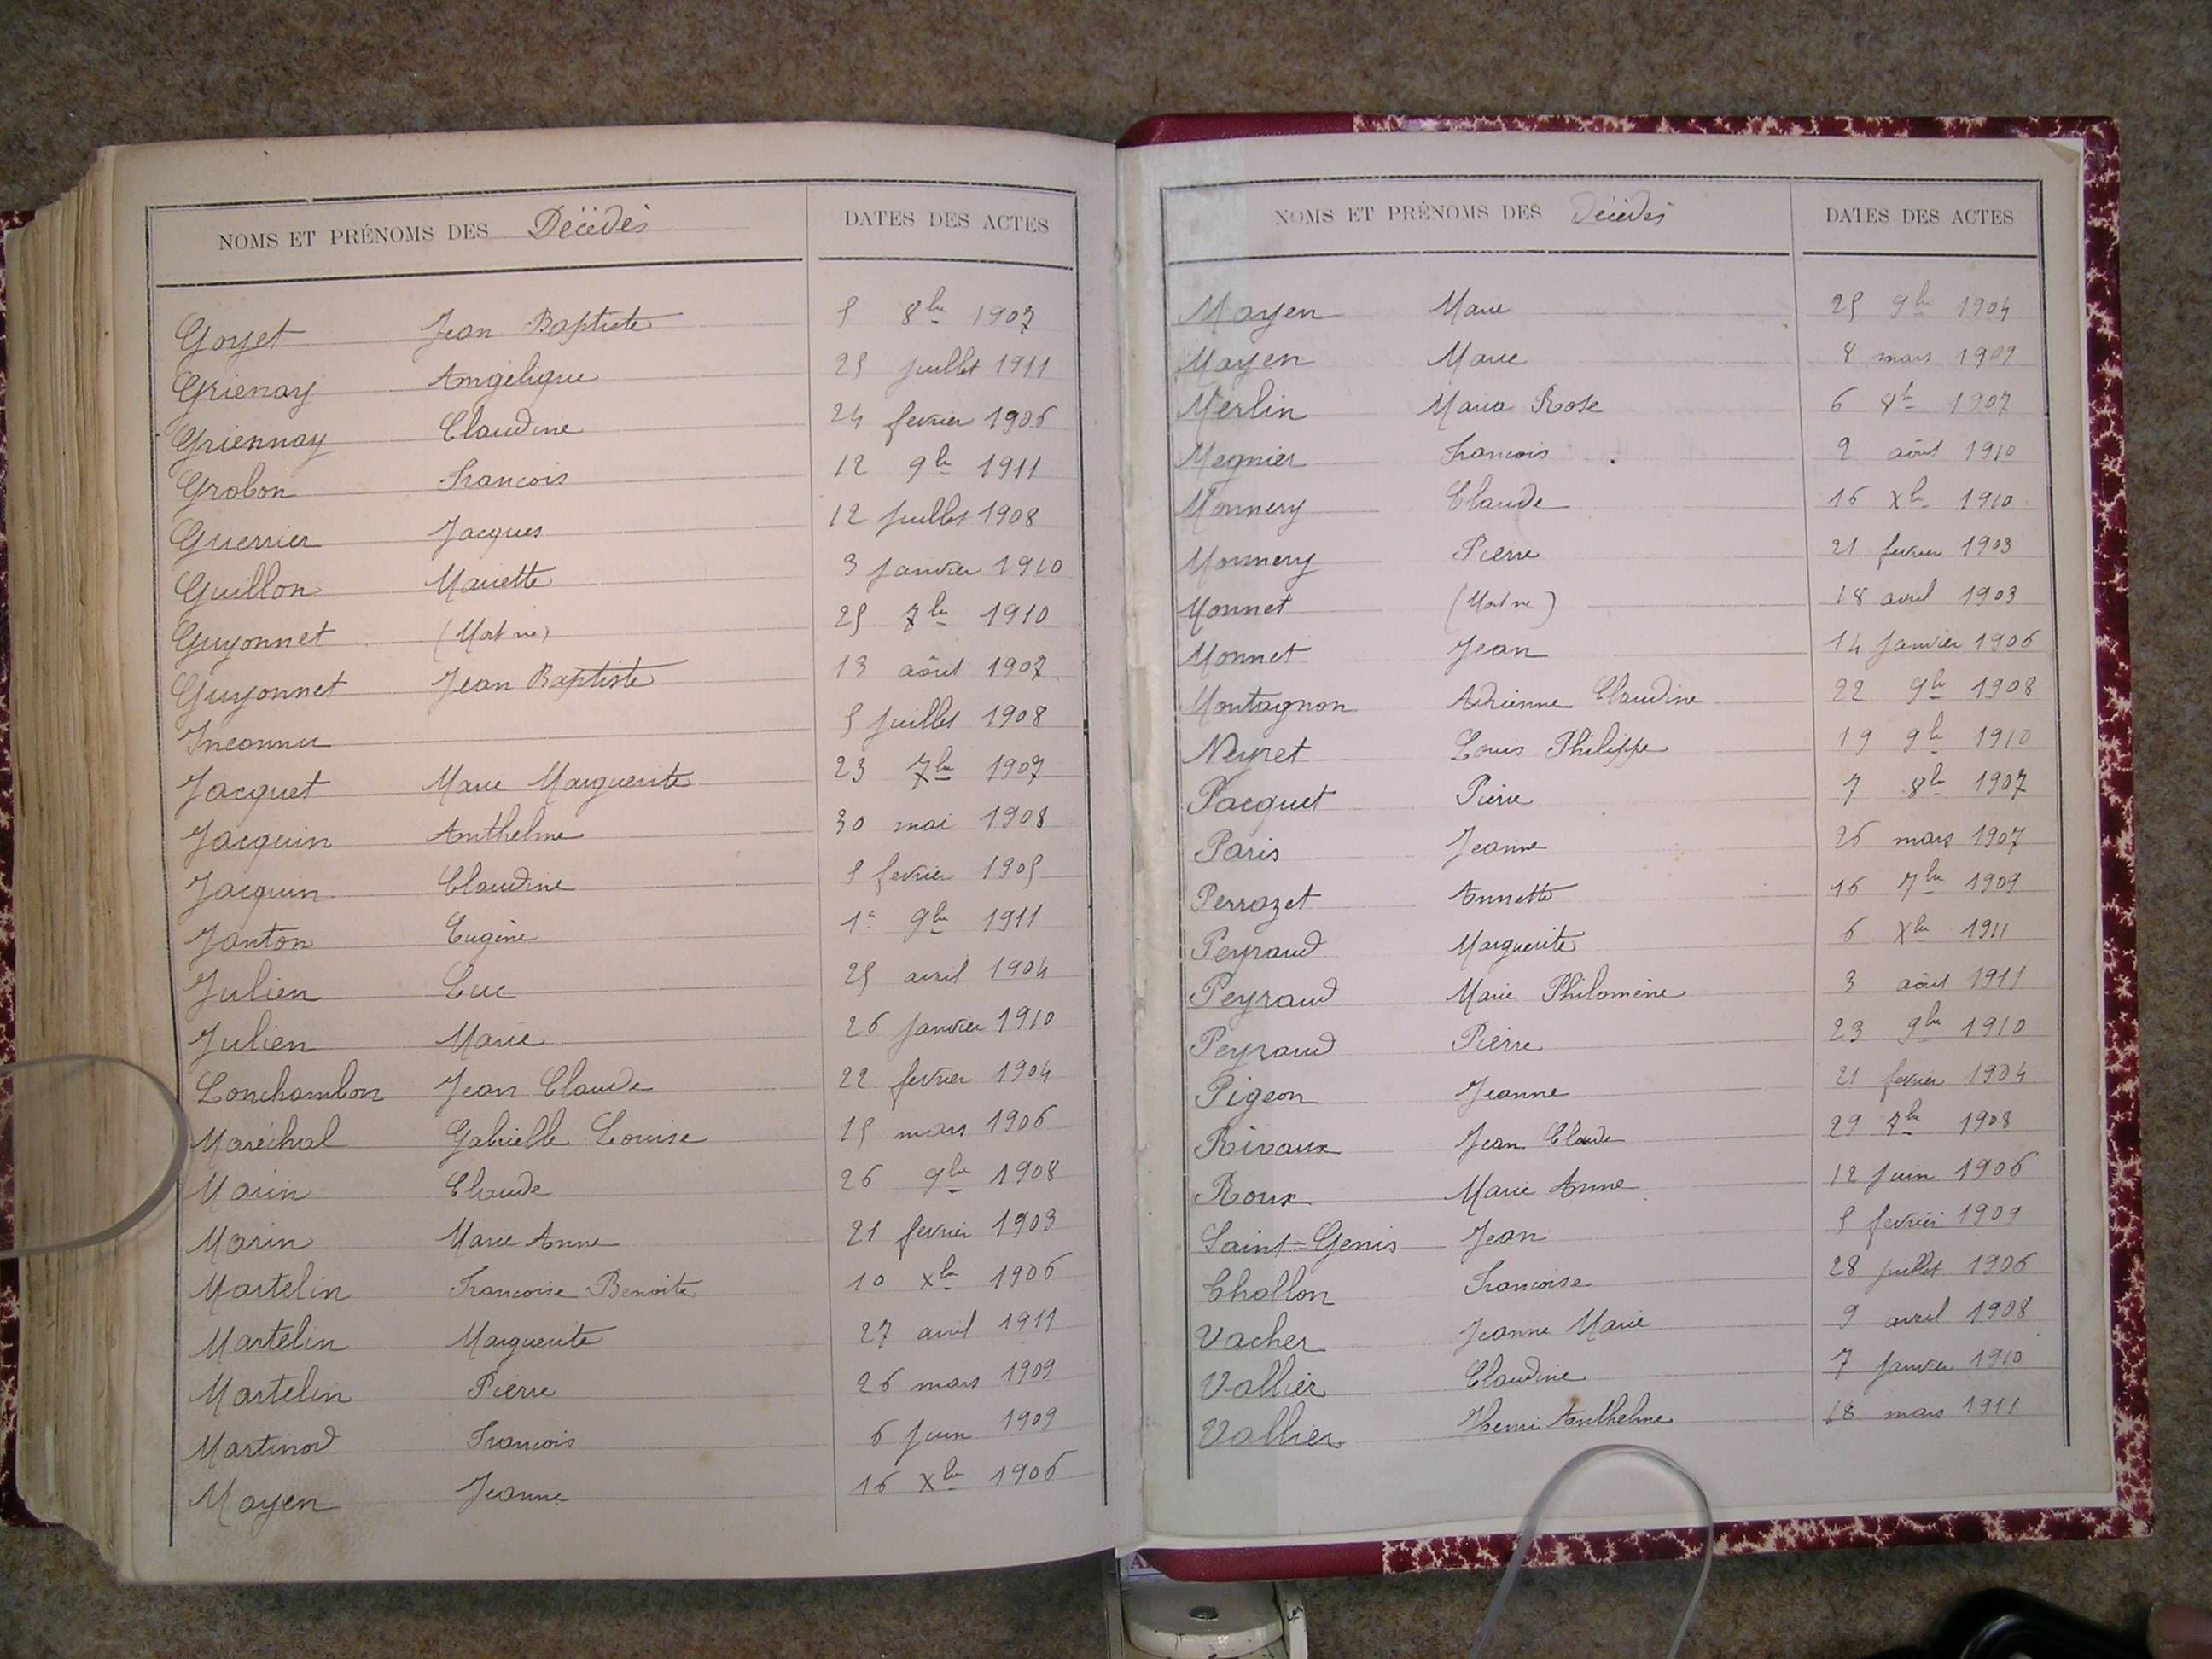 NOMS ET PRÉNOMS DES Décédés DATES DES ACTES
Goyet Jean Baptiste 5 8bre 1907
Grienay Angélique 25 juillet 1911
Griennay Claudine 24 fevrier 1906
Grobon Francois 12 9bre 1911
Guerrier Jacques 12 juillet 1908
Guillon Mariette 3 janvier 1910
Guyonnet (Mort né) 25 7bre 1910
Guyonnet Jean Baptiste 13 août 1907
Inconnu 5 juillet 1908
Jacquet Marie Marguerite 23 7bre 1907
Jacquin Anthelme 30 mai 1908
Jacquin Claudine 5 fevrier 1905
Janton Eugène 1er 9bre 1911
Julien Luc 25 avril 1904
Julien Marie 26 janvier 1910
Lonchambon Jean Claude 22 fevrier 1904
Maréchal Gabrielle Louise 15 mars 1906
Marin Claude 26 9bre 1908
Marin Marie Anne 21 fevrier 1903
Martelin Francoise Benoite 10 Xbre 1906
Martelin Marguerite 27 avril 1911
Martelin Pierre 26 mars 1909
Martinod Francois 6 juin 1909
Moyen Jeanne 16 Xbre 1906
NOMS ET PRÉNOMS DES Décédés DATES DES ACTES
Moyen Marie 25 9bre 1904
Moyen Marie 8 mars 1909
Merlin Maria Rose 6 8bre 1907
Megnier Francois 2 août 1910
Monnery Claude 16 Xbre 1910
Monnery Pierre 21 fevrier 1903
Monnet (Mort né) 18 avril 1903
Monnet Jean 14 janvier 1906
Montagnon Adrienne Claudine 22 9bre 1908
Neyret Louis Philippe 19 9bre 1910
Pacquet Pierre 7 8bre 1907
Paris Jeanne 26 mars 1907
Perrozet Annette 16 7bre 1909
Peyraud Marguerite 6 Xbre 1911
Peyraud Marie Philomène 3 août 1911
Peyraud Pierre 23 9bre 1910
Pigeon Jeanne 21 fevrier 1904
Rivaux Jean Claude 29 7bre 1908
Roux Marie Anne 12 juin 1906
Saint-Genis Jean 5 fevrier 1909
Chollon Francoise 28 juillet 1906
Vacher Jeanne Marie 9 avril 1908
Vallier Claudine 7 janvier 1910
Vallier Henri Anthelme 18 mars 1911